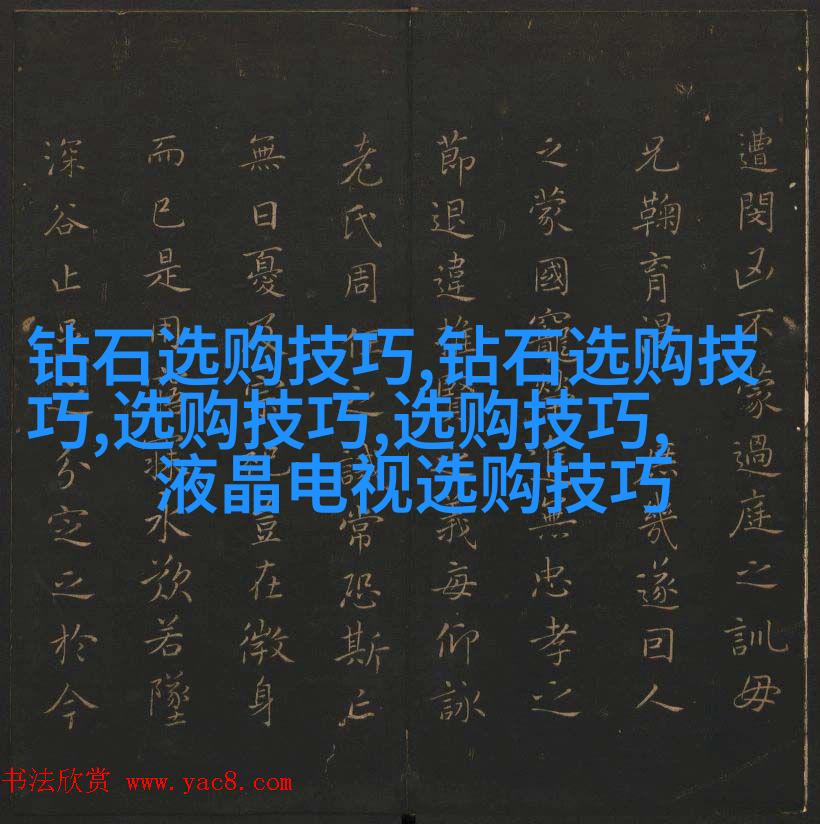 遭閔凶不蒙過庭之訓毋
兄鞠育 遂回人
之蒙國寵 無忠孝之
節退違推賢之義每仰詠
老氏周任之誡常恐斯亡
無日憂 豈在微身
而已是用 水欲若墜
深谷止 分定之於今
钻石选购技巧,钻石选购技
巧,选购技巧,选购技巧,
液晶电视选购技巧
书法欣赏 www.yac8.com